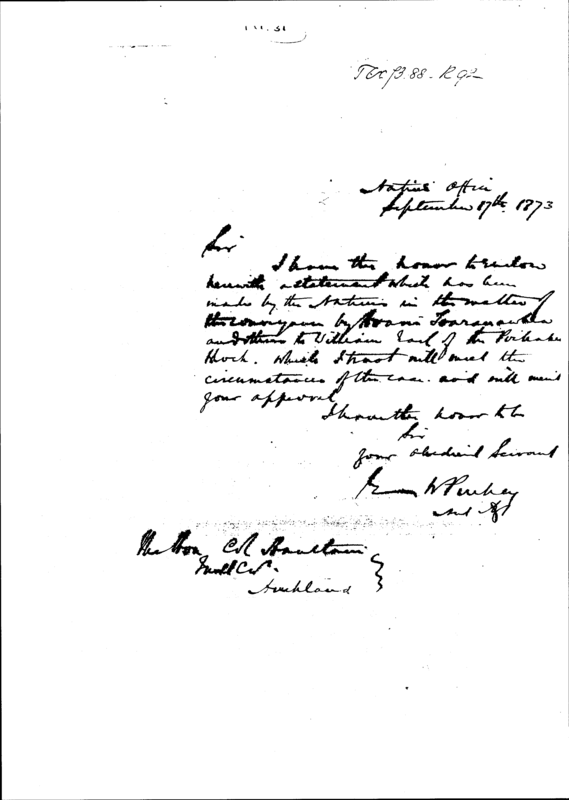 TCC 73.88. R92
Native Office
September 17th. 1873
Sir
I have the honor to enclose
herewith a statement which has been
made by the Natives in the matter of
the conveyance by
and others to William Earl of the
Block. which I trust will meet the
circumstances of the case. and will merit
your approval
I have the honor to be
Sir
your obedient Servant
The Hon Col Haultain
Auckland